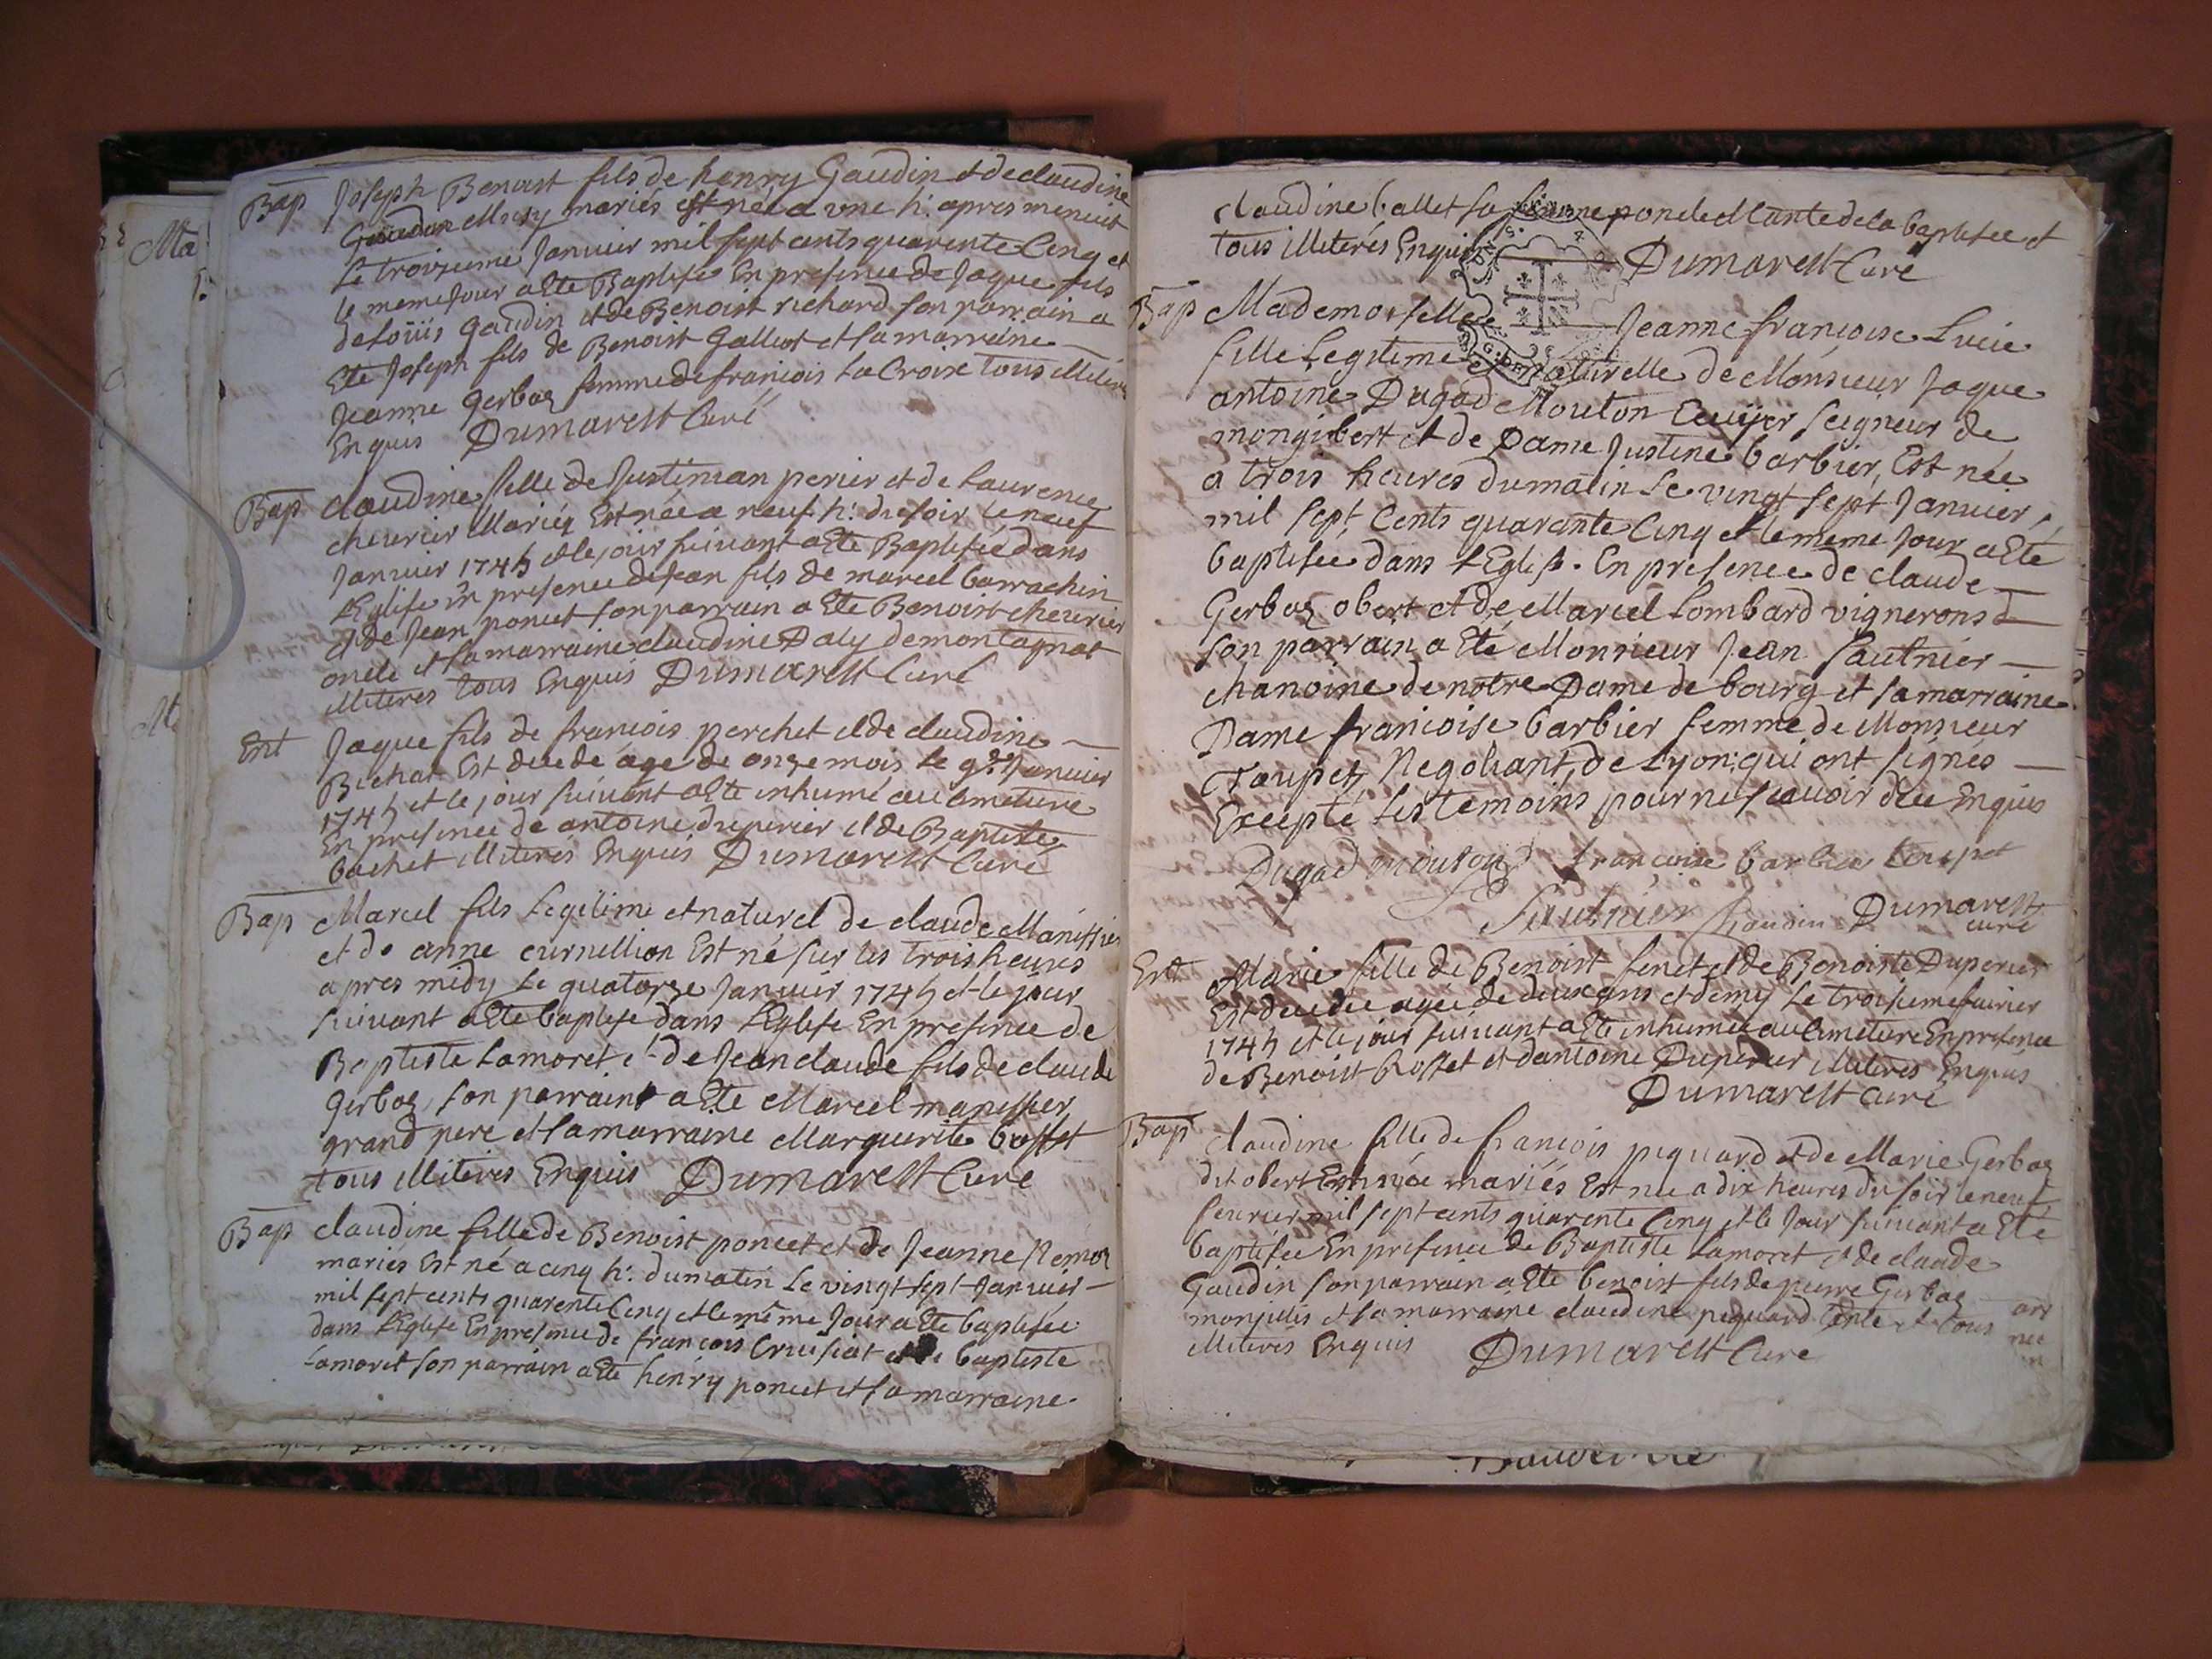 Bap Joseph Benoist fils de henry Gaudin et de claudine
Musy mariés est né a une h: apres menuit
Le troizieme Januier mil sept cents quarente Cinq et
le meme Jour a Ete Baptisé En presence de Jaque fils
de loüis Gaudin et de Benoist richard son parrain a
Ete Joseph fils de Benoist Galliot et sa marraine
Jeanne Gerbaz femme de francois La Croix tous illiterés
Enquis Dumarest Curé
Bap claudine fille de Justinian perier et de Laurence
cheurier Mariéz Est née a neuf h: du soir le neuf
Januier 1745 et le jour suiuant a Ete Baptisée dans
l'Eglise En presence de Jean fils de marcel barrachin
et de Jean poncet son parrain a Ete Benoist cheurier
oncle et sa marraine claudine Daly de montagnat
illiteres tous Enquis Dumarest Curé
Ent Jaque fils de francois perchet et de claudine
Bichat Est decede agé de onze mois le 9e Januier
1745 et le jour suiuant a Ete inhumé au Cimetiere
En presence de antoine duperier et de Baptiste
bachet illiterés Enquis Dumarest Curé
Bap Marcel fils Legitime et naturel de claude Manissier
et de anne curnillion Est né sur les trois heures
apres midy Le quatorze Januier 1745 et le jour
suiuant a Ete baptisé dans l'Eglise En presence de
Baptiste Lamoret et de Jean claude fils de claude
Gerbaz, son parrain a Ete Marcel manissier
grand pere et sa marraine Marguerite bosset
tous illiterés Enquis Dumarest Curé
Bap claudine fille de Benoist poncet et de Jeanne Nemoz
mariés Est né a cinq h: du matin Le vingt sept Januier
mil sept cents quarente Cinq et le même Jour a Ete baptisée
dans l'Eglise En presence de francois Cruisiat et de baptiste
Lamoret son parrain a Ete henry poncet et sa marraine
claudine ballet sa femme oncle et tante de la baptisée et
tous illiterés Enquis Dumarest Curé
Bap Mademoiselle Jeanne francoise Lucie
fille Legitime et naturelle de Monsieur Jaque
antoine Dugad Mouton Ecuÿer seigneur de
mongibert et de Dame Justine barbier, Est née
a trois heures du matin Le vingt sept Januier
mil sept Cents quarante Cinq et le meme Jour a Eté
baptisée dans l'Eglise. En presence de claude
Gerbaz obert et de Marcel Lombard vignerons
son parrain a Eté Monsieur Jean Saulnier
chanoine de notre Dame de bourg et sa marraine
Dame francoise barbier femme de Monsieur
Taupet, Negotiant, de Lyon: qui ont signés
Excepté les temoins pour ne scauoir de ce Enquis
Dugad mouton françoise barbier toupet
Saulnier Dumarest
curé
Ent Marie fille de Benoist feuet et de Benoiste Duperier
Est decedée agée de deux ans et demy le troisieme feurier
1745 et le jour suiuant a Ete inhumée au Cimetiere En presence
de Benoist bosset et d'antoine Duperier illiterés Enquis
Dumarest Curé
Bap claudine fille de francois piquard et de Marie Gerbaz
dit obert mariés Est née a dix heures du soir le neuf
feurier mil sept cents quarente Cinq et le Jour suiuant a Ete
baptisée En presence de Baptiste Lamoret et de claude
Gaudin son parrain a Ete benoist fils de pierre Gerbaz
monjullis et sa marraine claudine piquard tente et tous
illiteres Enquis Dumarest Curé